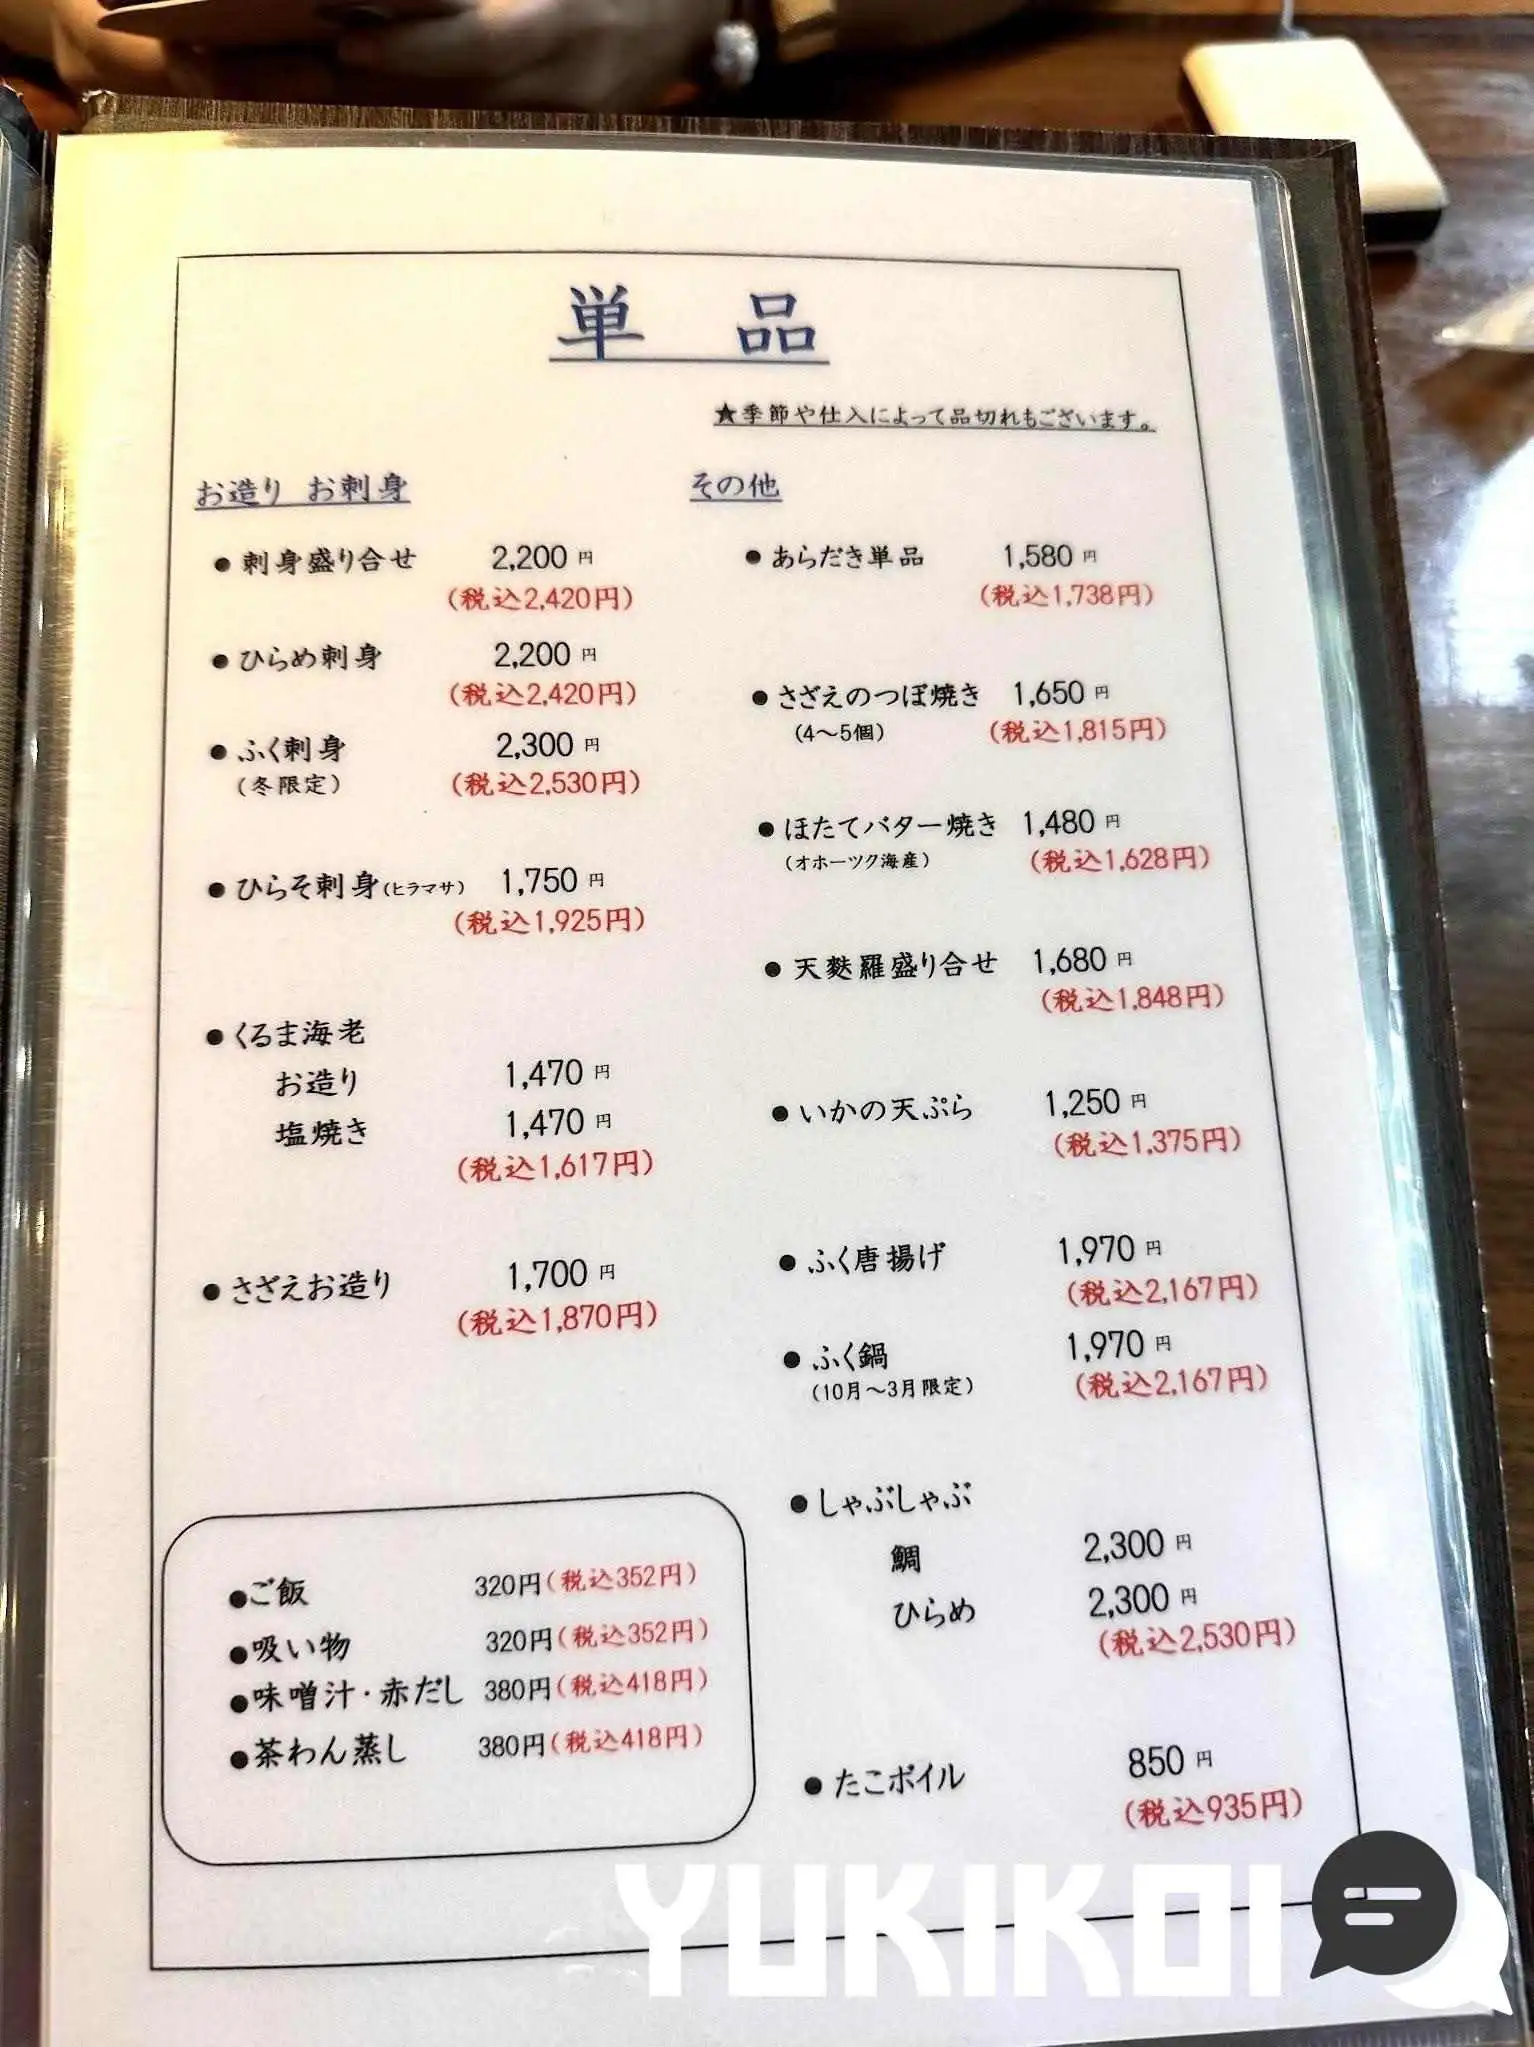 単 品
★季節や仕入によって品切れもございます。
お造り お刺身
●刺身盛り合せ 2,200円
(税込2,420円)
●ひらめ刺身 2,200円
(税込2,420円)
●ふく刺身 2,300円
(冬限定) (税込2,530円)
●ひらそ刺身(ヒラマサ) 1,750円
(税込1,925円)
●くるま海老
お造り 1,470円
塩焼き 1,470円
(税込1,617円)
●さざえお造り 1,700円
(税込1,870円)
●ご飯 320円(税込352円)
●吸い物 320円(税込352円)
●味噌汁・赤だし 380円(税込418円)
●茶わん蒸し 380円(税込418円)
その他
●あらだき単品 1,580円
(税込1,738円)
●さざえのつぼ焼き 1,650円
(4〜5個) (税込1,815円)
●ほたてバター焼き 1,480円
(オホーツク海産) (税込1,628円)
●天麩羅盛り合せ 1,680円
(税込1,848円)
●いかの天ぷら 1,250円
(税込1,375円)
●ふく唐揚げ 1,970円
(税込2,167円)
●ふく鍋 1,970円
(10月〜3月限定) (税込2,167円)
●しゃぶしゃぶ
鯛 2,300円
ひらめ 2,300円
(税込2,530円)
●たこボイル 850円
(税込935円)
YUKIKOI